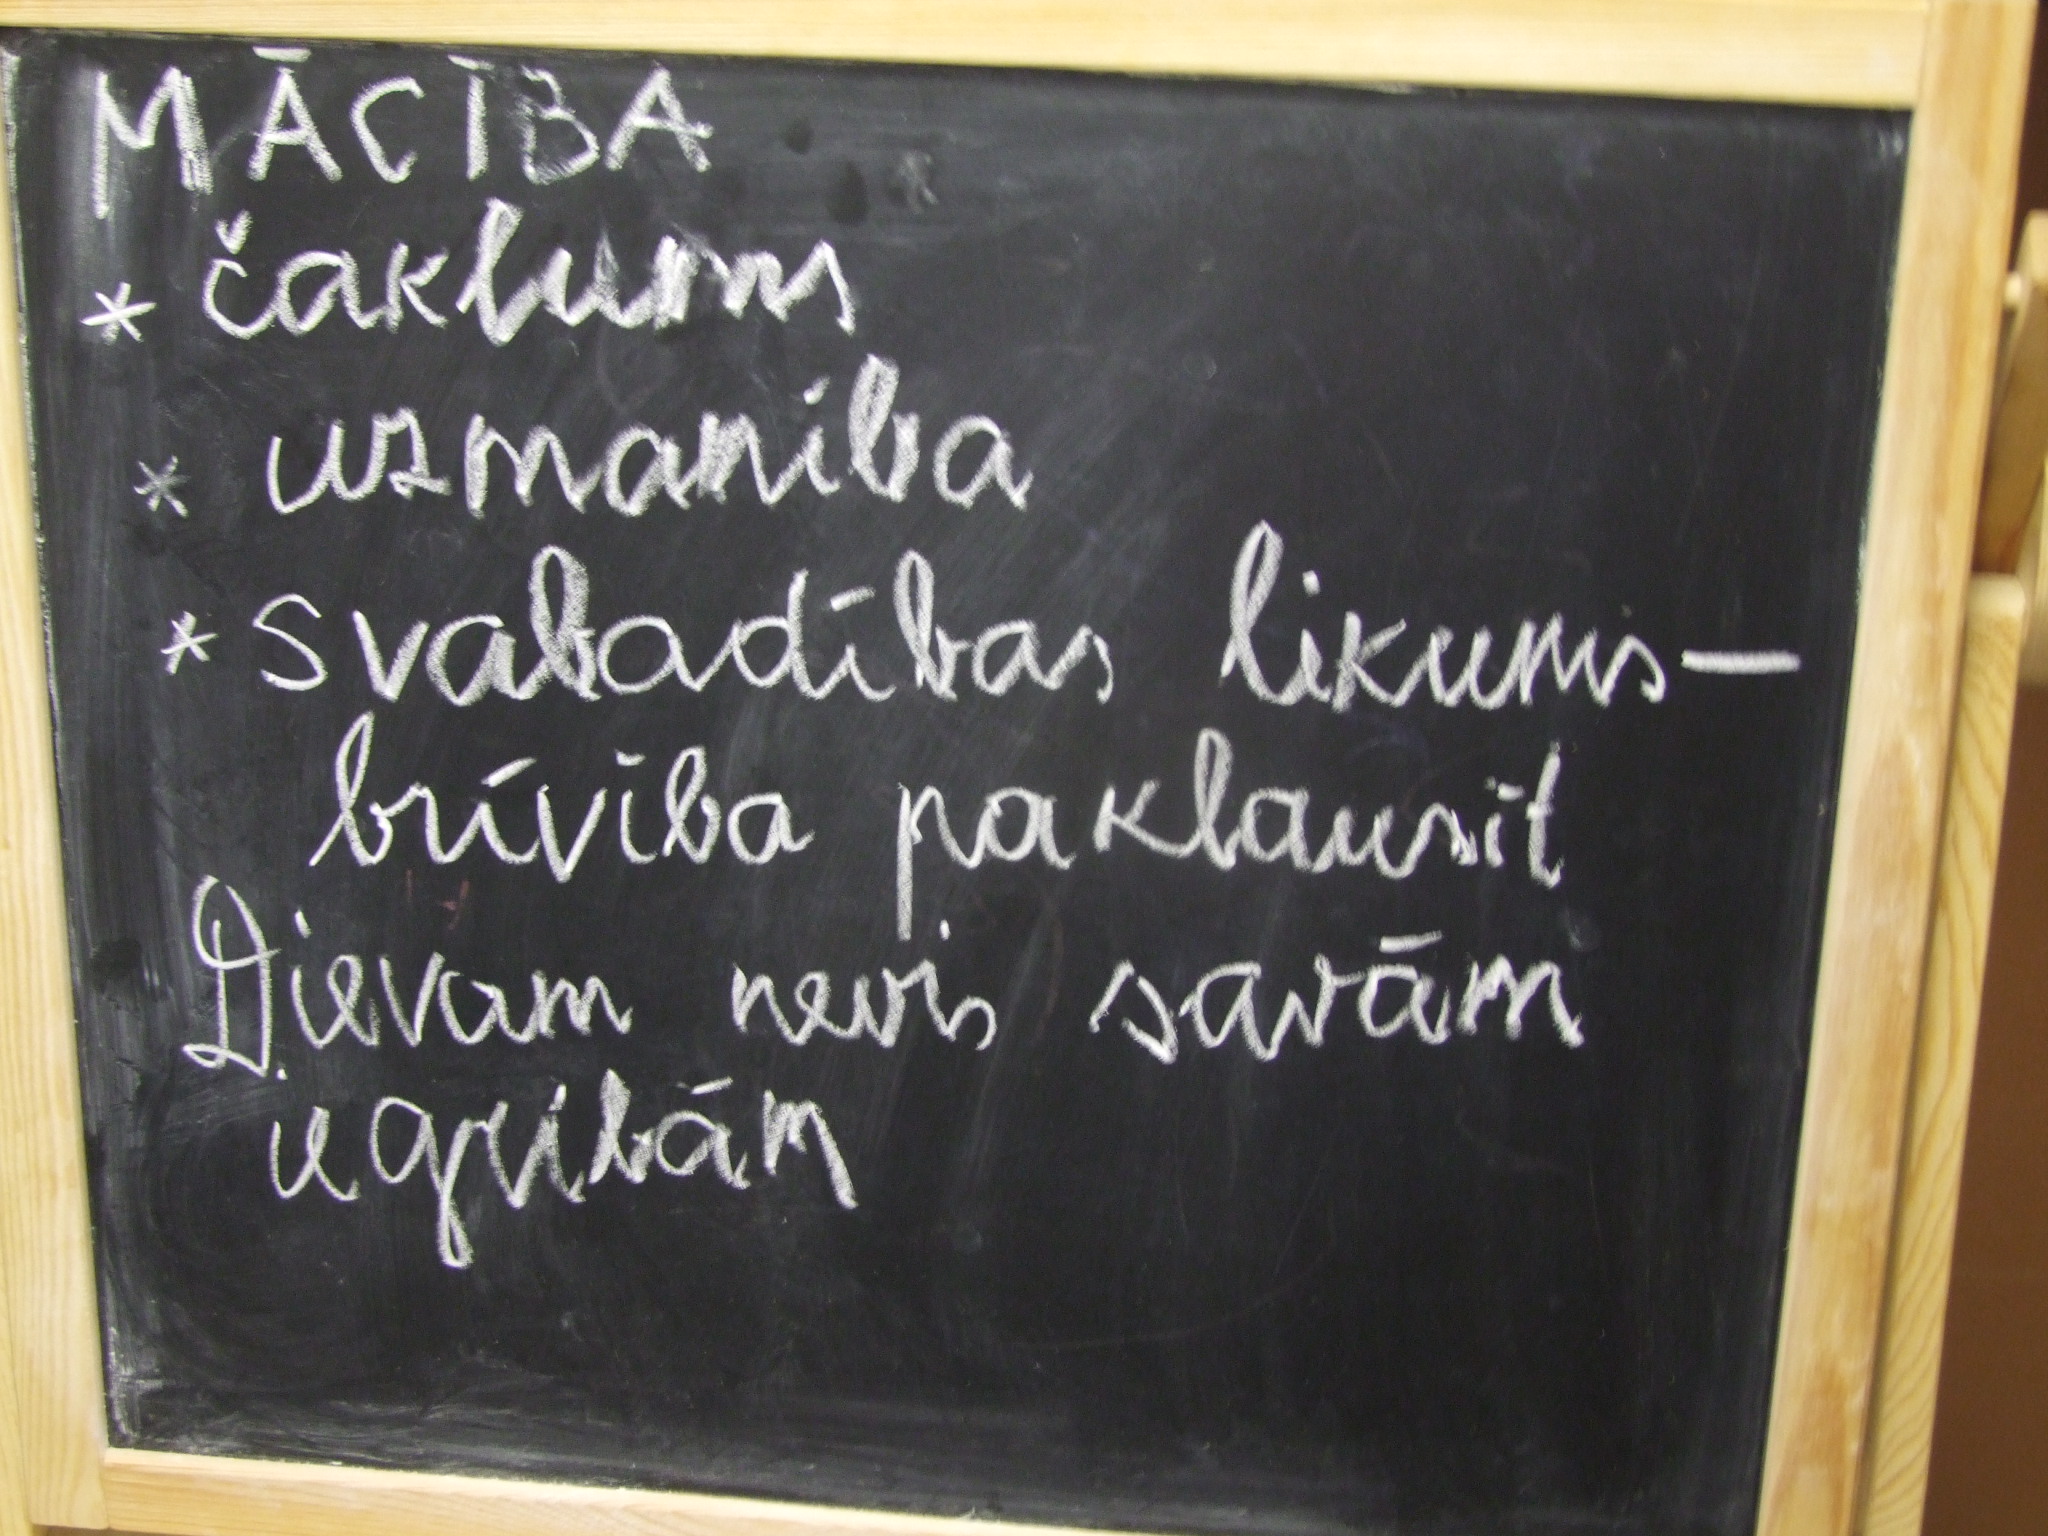 MĀCĪBA
* čaklums
* uzmanība
* svabadības likums—
brīvība paklausīt
Dievam nevis savām
iegribām